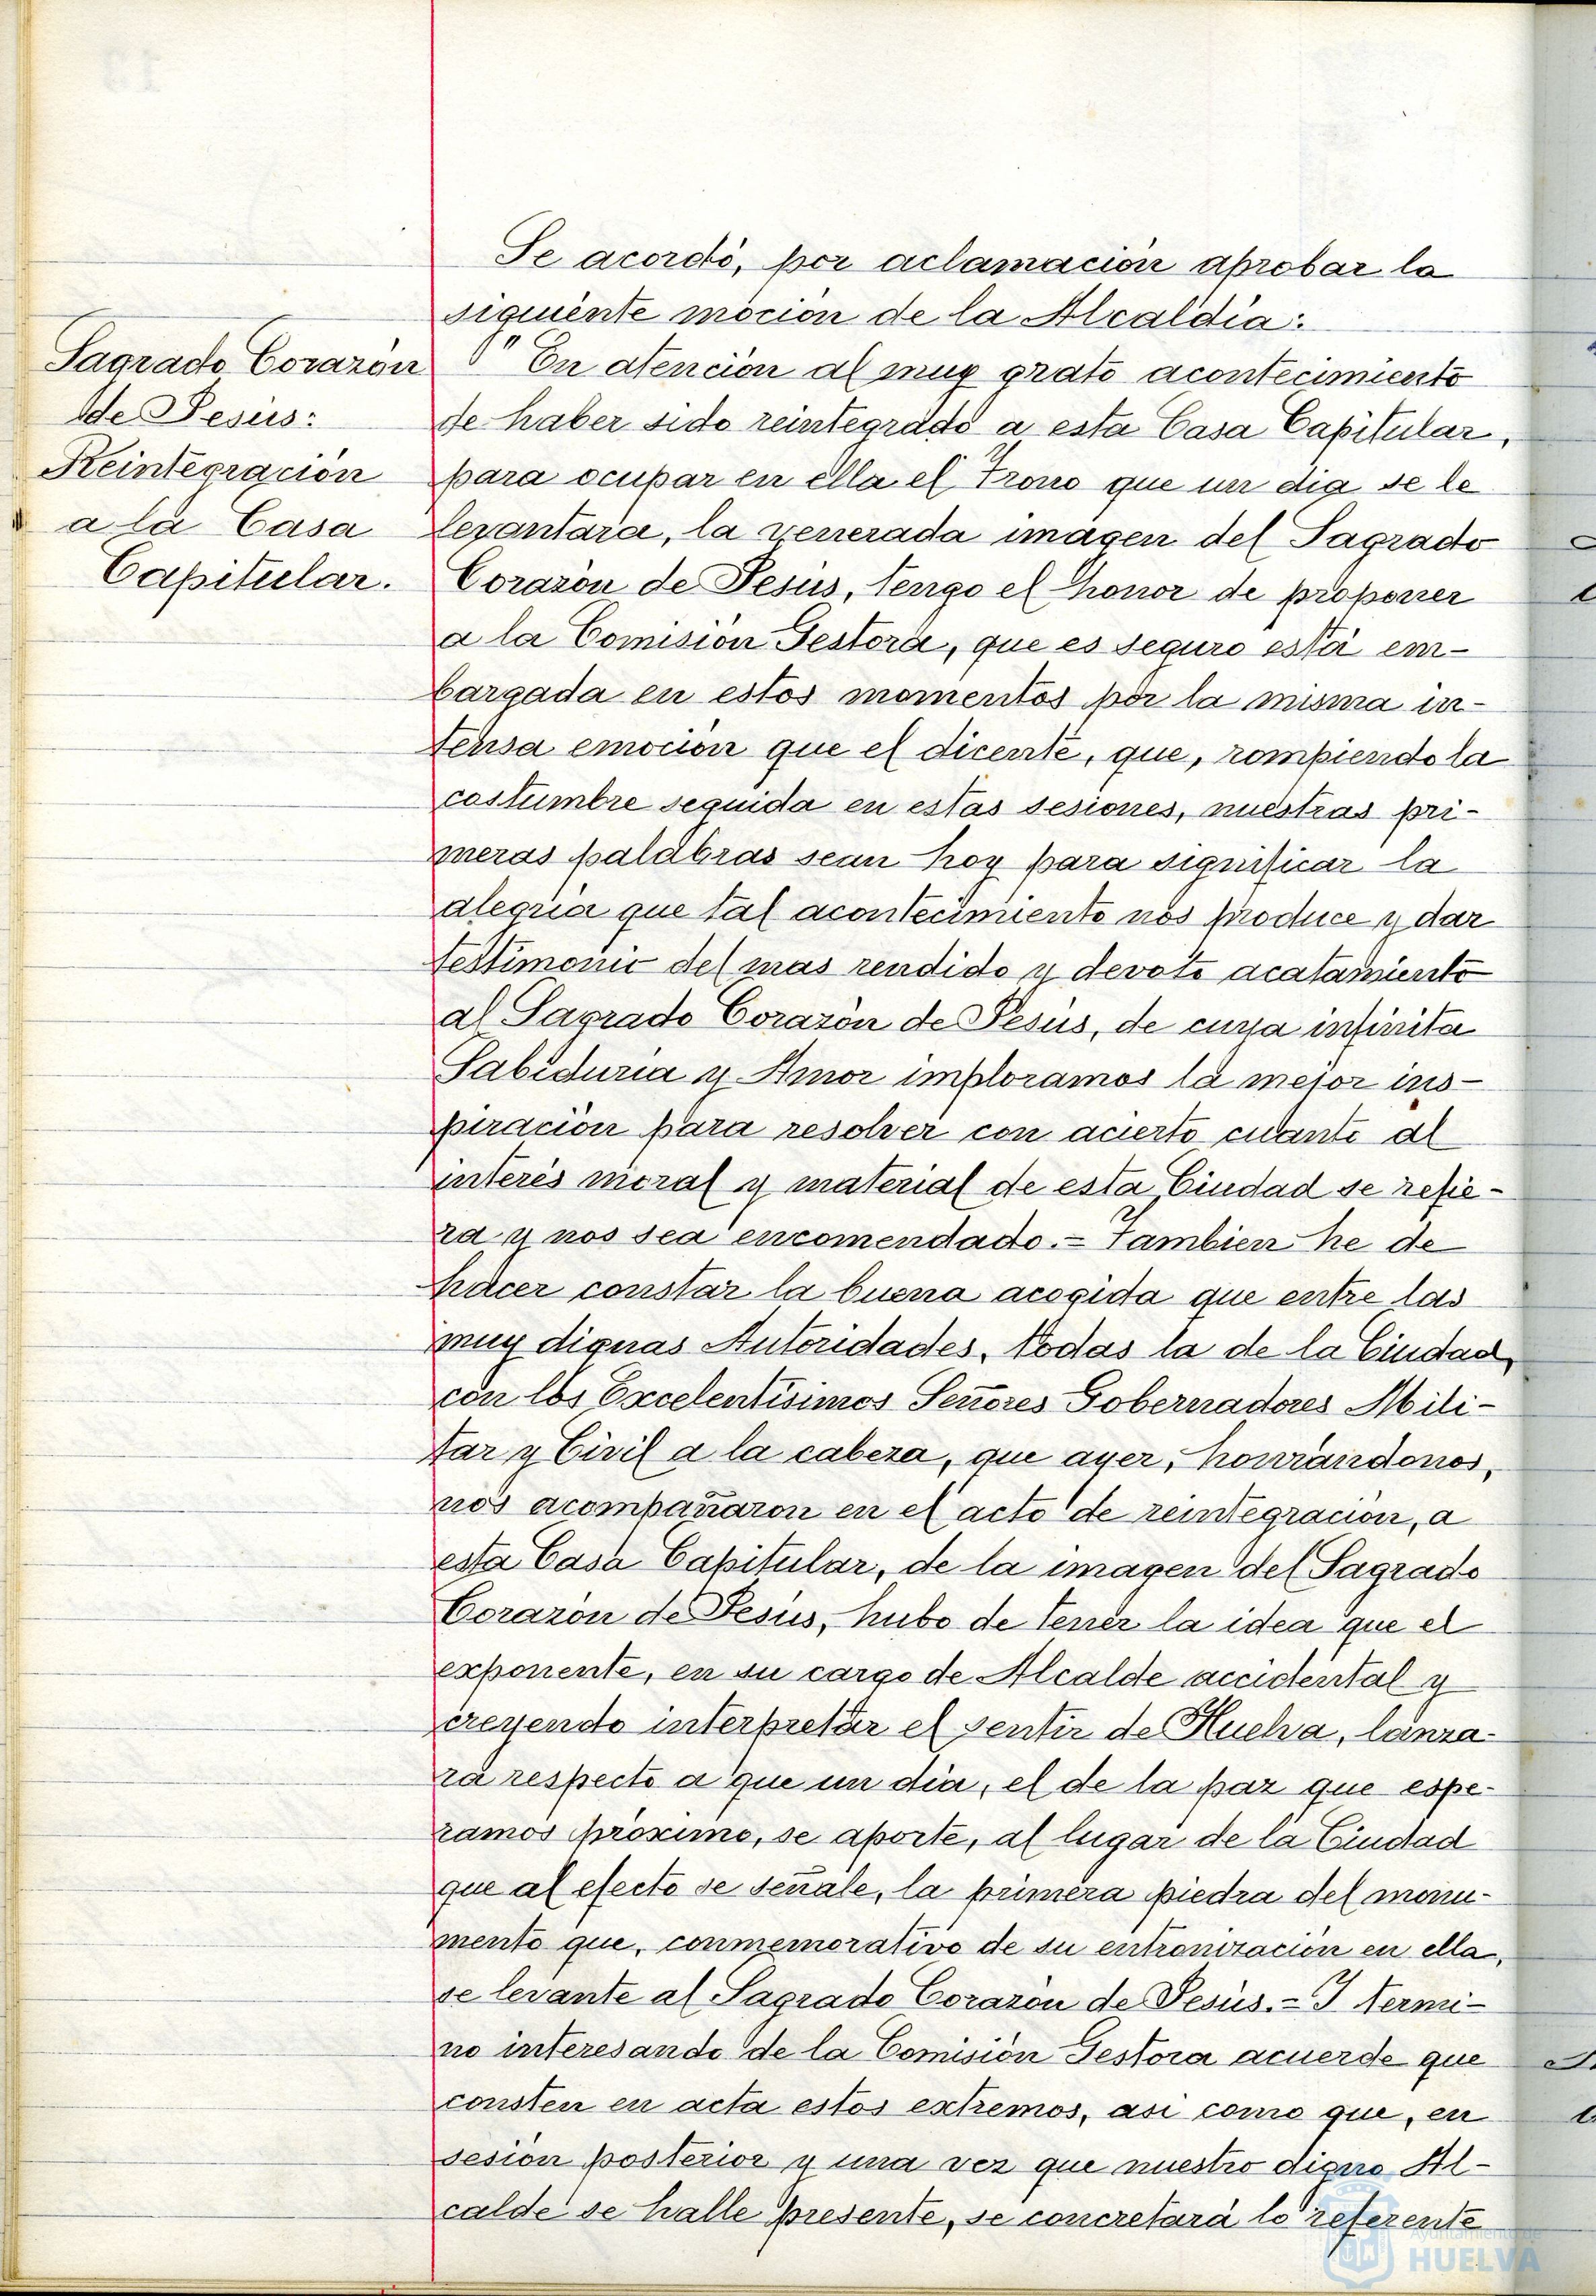 Sagrado Corazón
de Jesús:
Reintegración
a la Casa
Capitular.
Se acordó, por aclamación aprobar la
siguiente moción de la Alcaldía:
"En atención al muy grato acontecimiento
de haber sido reintegrado a esta Casa Capitular,
para ocupar en ella el Trono que un dia se le
levantara, la venerada imágen del Sagrado
Corazón de Jesús, tengo el honor de proponer
a la Comisión Gestora, que es seguro está em-
bargada en estos momentos por la misma in-
tensa emoción que el dicente, que, rompiendo la
costumbre seguida en estas sesiones, nuestras pri-
meras palabras sean hoy para significar la
alegria que tal acontecimiento nos produce y dar
testimonio del mas rendido y devoto acatamiento
al Sagrado Corazón de Jesús, de cuya infinita
Sabiduria y Amor imploramos la mejor ins-
piración para resolver con acierto cuanto al
interés moral y material de esta Ciudad se refie-
ra y nos sea encomendado.= Tambien he de
hacer constar la buena acogida que entre las
muy dignas Autoridades, todas la de la Ciudad,
con los Excelentísimos Señores Gobernadores Mili-
tar y Civil a la cabeza, que ayer, honrándonos,
nos acompañaron en el acto de reintegración, a
esta Casa Capitular, de la imagen del Sagrado
Corazón de Jesús, hubo de tener la idea que el
exponente, en su cargo de Alcalde accidental y
creyendo interpretar el sentir de Huelva, lanza-
ra respecto a que un dia, el de la paz que espe-
ramos próximo, se aporte, al lugar de la Ciudad
que al efecto se señale, la primera piedra del monu-
mento que, conmemorativo de su entronización en ella,
se levante al Sagrado Corazón de Jesús.= Y termi-
no interesando de la Comisión Gestora acuerde que
consten en acta estos extremos, asi como que, en
sesión posterior y una vez que nuestro digno Al-
calde se halle presente, se concretará lo referente
Ayuntamiento de
HUELVA